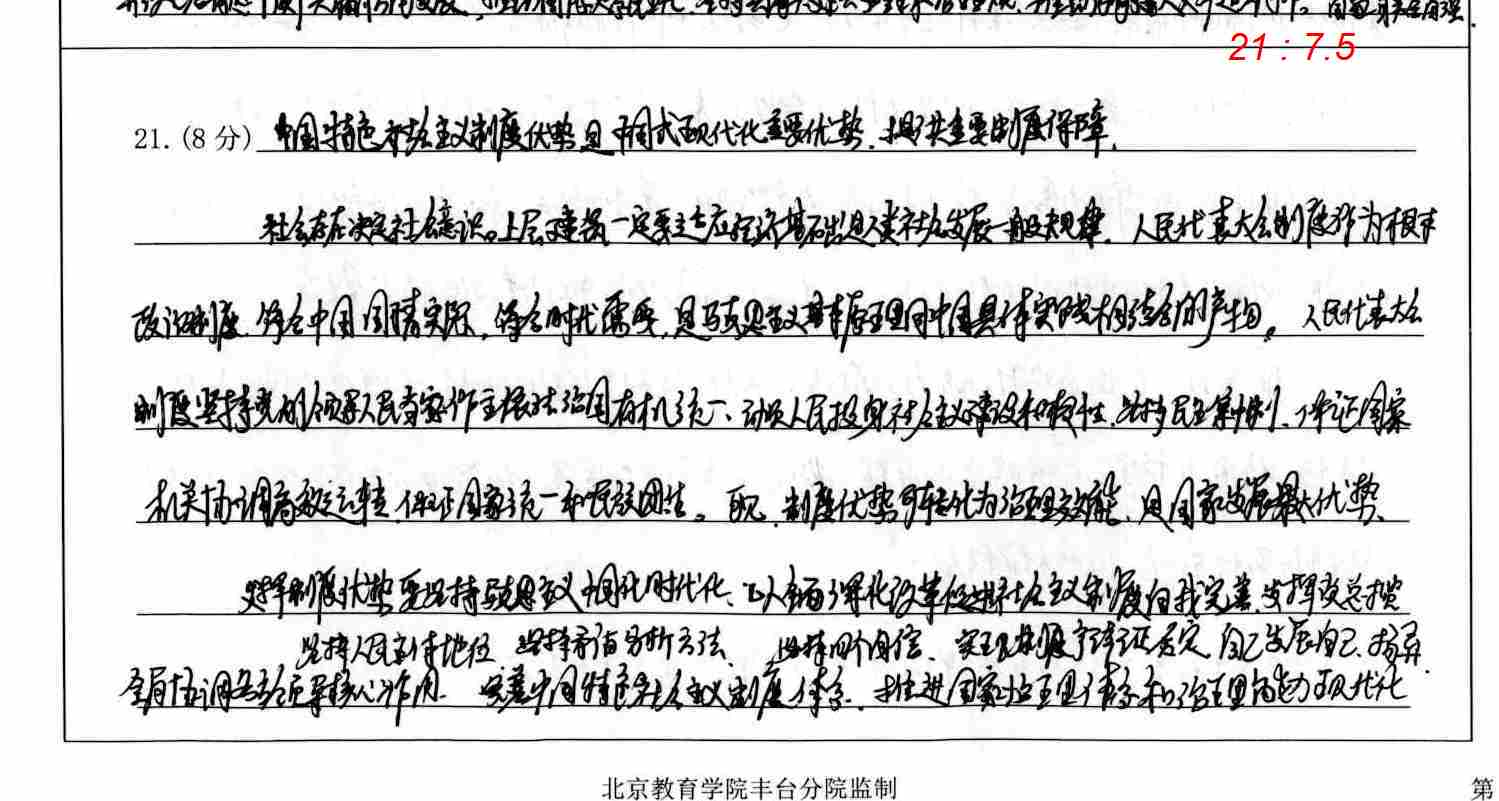 21 : 7.5
21. (8 分) 中国特色社会主义制度优势是中国式现代化重要优势,提供重要制度保障,
社会存在决定社会意识。上层建筑一定要适应经济基础是人类社会发展一般规律,人民代表大会制度作为根本
政治制度,符合中国国情实际,符合时代需要,是马克思主义基本原理同中国具体实践相结合的产物。人民代表大会
制度坚持党的领导人民当家作主依法治国有机统一、动员人民投身社会主义建设积极性,坚持民主集中制、保证国家
机关协调高效运转,保证国家统一和民族团结。制度优势可转化为治理效能,是国家发展最大优势、
发挥制度优势要坚持马克思主义中国化时代化、以全面深化改革促进社会主义制度自我完善,发挥党总揽
坚持人民主体地位 坚持矛盾分析方法、坚持四个自信、实现制度辩证否定 自己发展自己,扬弃
全局协调各方领导核心作用 完善中国特色社会主义制度体系,推进国家治理体系和治理能力现代化
北京教育学院丰台分院监制
第